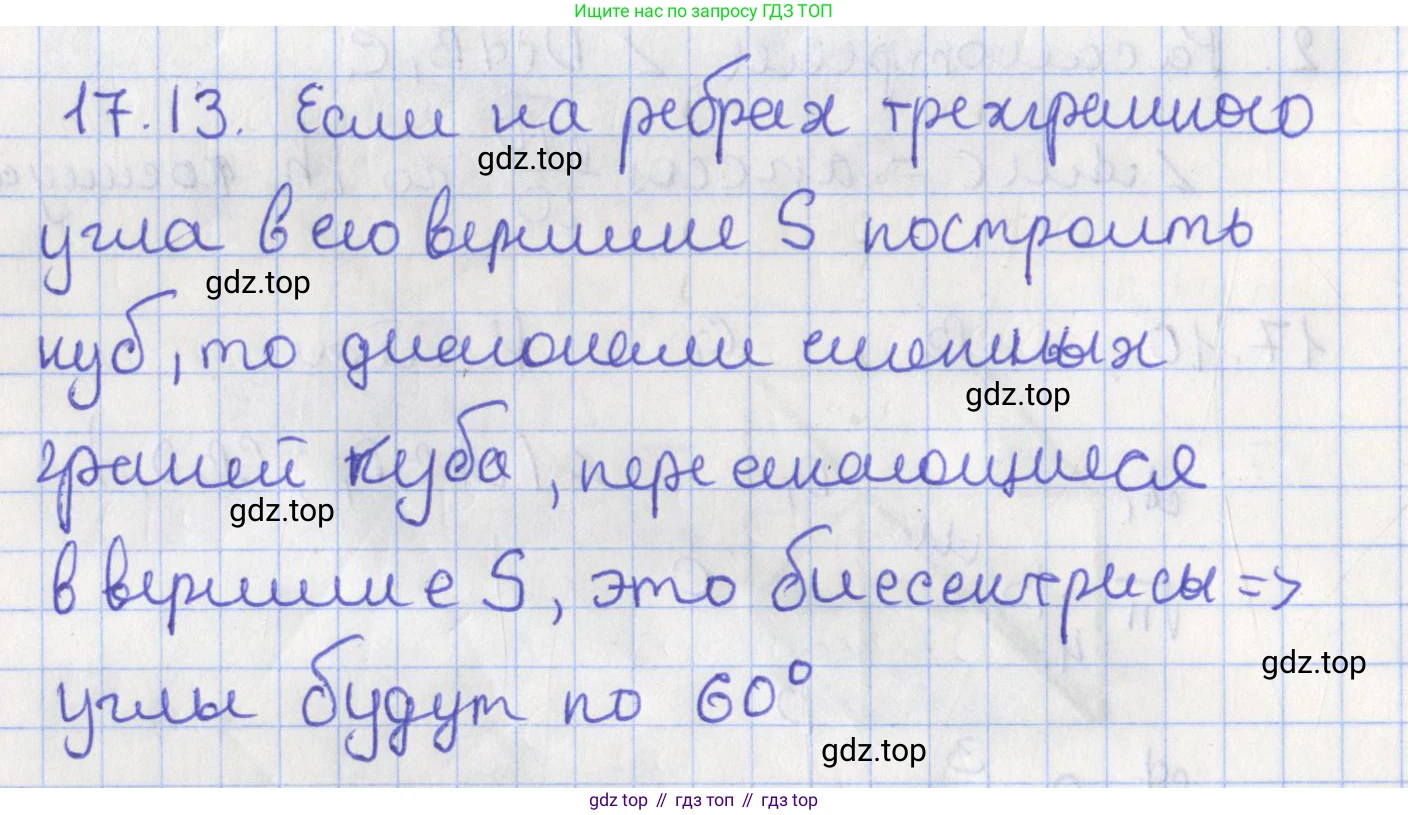 Ищите нас по запросу ГДЗ ТОП
17.13. Если на ребрах трехгранного
gdz.top
угла в его вершине S построить
gdz.top
куб, то диагонали смежных
gdz.top
граней куба, пересекающиеся
gdz.top
в вершине S, это биссектрисы =>
gdz.top
углы будут по 60°
gdz.top
gdz top // гдз топ // гдз top